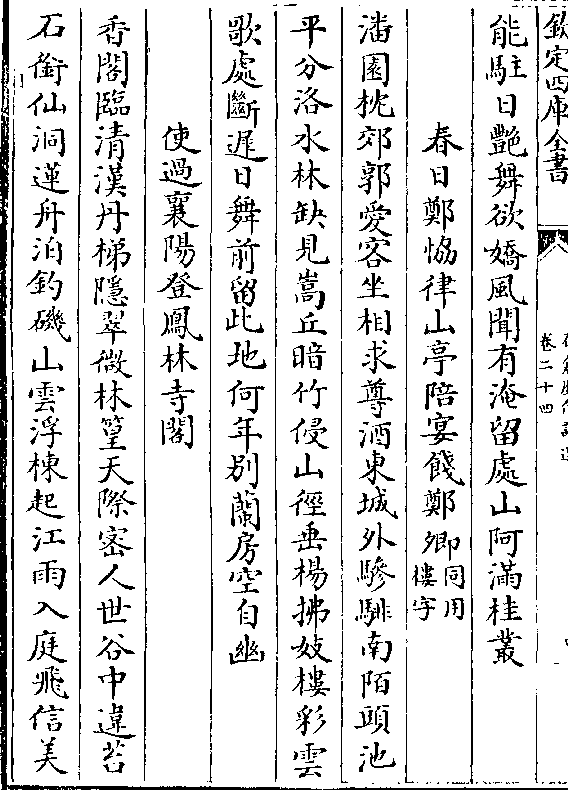 欽定四庫全書
卷二十四
能駐日艷舞欲嬌風聞有淹留處山阿滿桂叢
春日鄭恊律山亭陪宴餞鄭卿同用樓字
潘園枕郊郭愛客坐相求尊酒東城外驂騑南陌頭池
平分洛水林缺見嵩丘暗竹侵山徑垂楊拂妓樓彩雲
歌處斷遲日舞前留此地何年别蘭房空自幽
使過襄陽登鳳林寺閣
香閣臨清漢丹梯隱翠微林篁天際密人世谷中違苔
石銜仙洞蓮舟泊釣磯山雲浮棟起江雨入庭飛信美